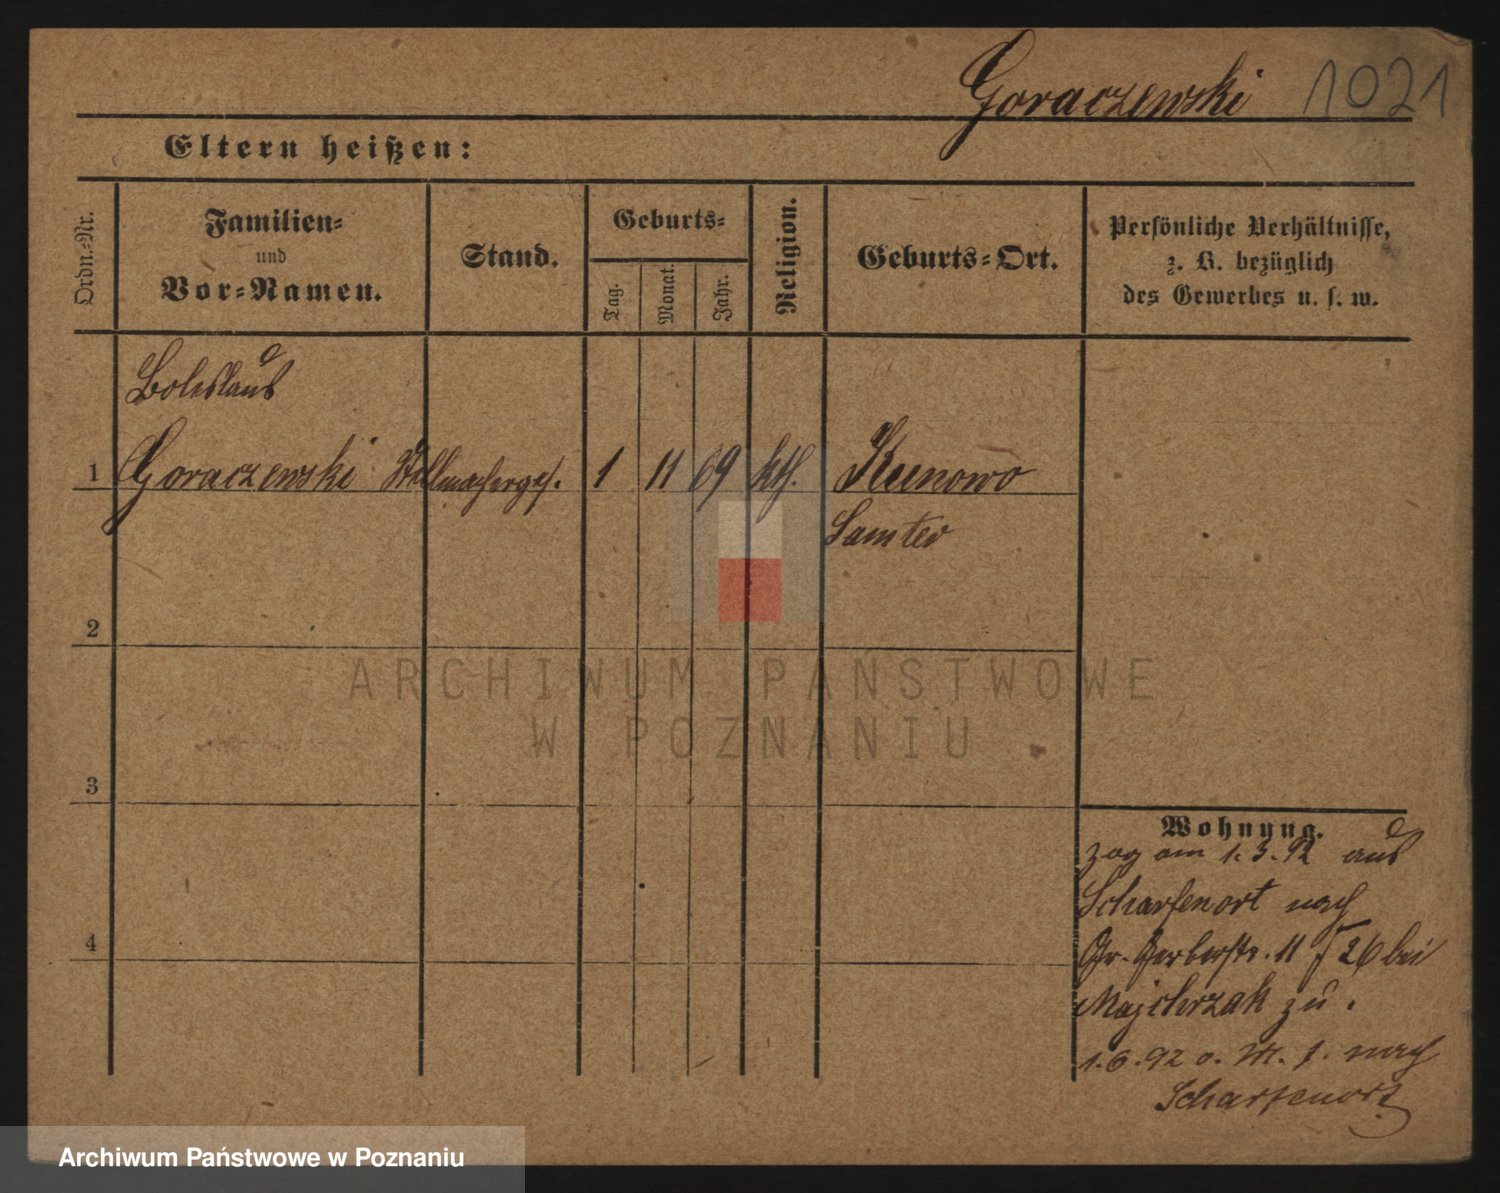 Goraczewski 1021
Eltern heißen:
Ordn.-Nr.
Familien-
und
Vor-Namen.
Stand.
Geburts-
Tag.
Monat.
Jahr.
Religion.
Geburts-Ort.
Persönliche Verhältnisse,
z. B. bezüglich
des Gewerbes u. s. w.
Boleslaus
1 Goraczewski Stellmacherges. 1 11 69 kth. Kunowo
Samter
2
3
4
Wohnung.
zog am 1.3.92 aus
Scharfenort nach
Gr. Gerberstr. 11 26 bei
Majchrzak zu.
1.6.92 nach
Scharfenort
ARCHIWUM PAŃSTWOWE
W POZNANIU
Archiwum Państwowe w Poznaniu